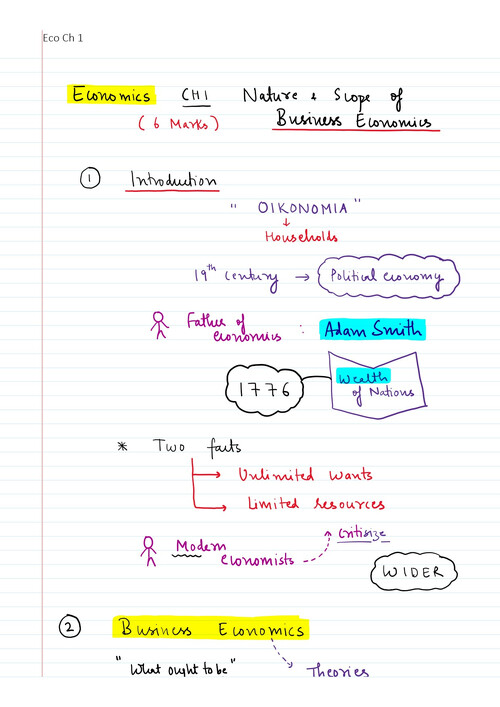 Eco Ch 1
Economics CH1 Nature & Scope of
(6 Marks) Business Economics
1 Introduction
" OIKONOMIA "
↓
Households
19th century → Political economy
Father of economics : Adam Smith
1776 Wealth of Nations
* Two facts
→ Unlimited wants
→ Limited resources
critisize
Modern economists
WIDER
2 Business Economics
"What ought to be" Theories